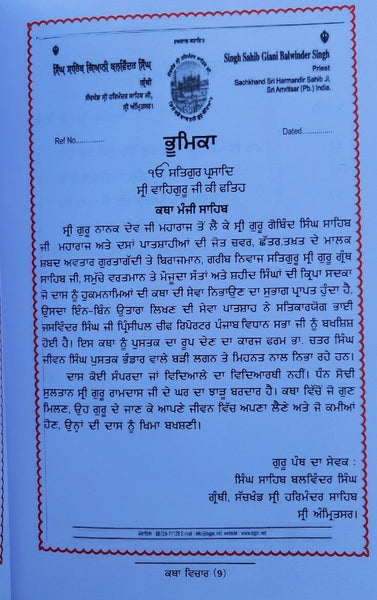 ਸਿੰਘ ਸਾਹਿਬ ਗਿਆਨੀ ਬਲਵਿੰਦਰ ਸਿੰਘ,
ਗ੍ਰੰਥੀ
ਸੱਚਖੰਡ ਸ੍ਰੀ ਹਰਿਮੰਦਰ ਸਾਹਿਬ ਜੀ,
ਸ੍ਰੀ ਅੰਮ੍ਰਿਤਸਰ।
Singh Sahib Giani Balwinder Singh
Priest
Sachkhand Sri Harmandir Sahib Ji,
Sri Amritsar (Pb.) India.
Ref No............
Dated................
ਭੂਮਿਕਾ
ੴ ਸਤਿਗੁਰ ਪ੍ਰਸਾਦਿ
ਸ੍ਰੀ ਵਾਹਿਗੁਰੂ ਜੀ ਕੀ ਫਤਿਹ
ਕਥਾ ਮੰਜੀ ਸਾਹਿਬ
ਸ੍ਰੀ ਗੁਰੂ ਨਾਨਕ ਦੇਵ ਜੀ ਮਹਾਰਾਜ ਤੋਂ ਲੈ ਕੇ ਸ੍ਰੀ ਗੁਰੂ ਗੋਬਿੰਦ ਸਿੰਘ ਸਾਹਿਬ
ਜੀ ਮਹਾਰਾਜ ਅਤੇ ਦਸਾਂ ਪਾਤਸ਼ਾਹੀਆਂ ਦੀ ਜੋਤ ਚਵਰ, ਛੱਤਰ,ਤਖ਼ਤ ਦੇ ਮਾਲਕ
ਸ਼ਬਦ ਅਵਤਾਰ ਗੁਰਤਾਗੱਦੀ ਤੇ ਬਿਰਾਜਮਾਨ, ਗਰੀਬ ਨਿਵਾਜ ਸਤਿਗੁਰੂ ਸ੍ਰੀ ਗੁਰੂ ਗ੍ਰੰਥ
ਸਾਹਿਬ ਜੀ, ਸਮੁੱਚੇ ਵਰਤਮਾਨ ਤੇ ਮੌਜੂਦਾ ਸੰਤਾਂ ਅਤੇ ਸ਼ਹੀਦ ਸਿੰਘਾਂ ਦੀ ਕ੍ਰਿਪਾ ਸਦਕਾ
ਜੋ ਦਾਸ ਨੂੰ ਹੁਕਮਨਾਮਿਆਂ ਦੀ ਕਥਾ ਦੀ ਸੇਵਾ ਨਿਭਾਉਣ ਦਾ ਸੁਭਾਗ ਪ੍ਰਾਪਤ ਹੁੰਦਾ ਹੈ,
ਉਸਦਾ ਇੰਨ-ਬਿੰਨ ਉਤਾਰਾ ਲਿਖਣ ਦੀ ਸੇਵਾ ਪਾਤਸ਼ਾਹ ਨੇ ਸਤਿਕਾਰਯੋਗ ਭਾਈ
ਜਸਵਿੰਦਰ ਸਿੰਘ ਜੀ ਪ੍ਰਿੰਸੀਪਲ ਚੀਫ ਰਿਪੋਰਟਰ ਪੰਜਾਬ ਵਿਧਾਨ ਸਭਾ ਜੀ ਨੂੰ ਬਖਸ਼ਿਸ਼
ਹੋਈ ਹੈ। ਇਸ ਕਥਾ ਨੂੰ ਪੁਸਤਕ ਦਾ ਰੂਪ ਦੇਣ ਦਾ ਕਾਰਜ ਫਰਮ ਭਾ. ਚਤਰ ਸਿੰਘ
ਜੀਵਨ ਸਿੰਘ ਪੁਸਤਕ ਭੰਡਾਰ ਵਾਲੇ ਬੜੀ ਲਗਨ ਤੇ ਮਿਹਨਤ ਨਾਲ ਨਿਭਾ ਰਹੇ ਹਨ।
ਦਾਸ ਕੋਈ ਸੰਪਰਦਾ ਜਾਂ ਵਿਦਿਆਲੇ ਦਾ ਵਿਦਿਆਰਥੀ ਨਹੀਂ। ਧੰਨ ਸੋਢੀ
ਸੁਲਤਾਨ ਸ੍ਰੀ ਗੁਰੂ ਰਾਮਦਾਸ ਜੀ ਦੇ ਘਰ ਦਾ ਝਾੜੂ ਬਰਦਾਰ ਹੈ। ਕਥਾ ਵਿੱਚੋਂ ਜੋ ਗੁਣ
ਮਿਲਣ, ਉਹ ਗੁਰੂ ਦੇ ਜਾਣ ਕੇ ਆਪਣੇ ਜੀਵਨ ਵਿੱਚ ਅਪਣਾ ਲੈਣੇ ਅਤੇ ਜੋ ਕਮੀਆਂ
ਹੋਣ, ਉਨ੍ਹਾਂ ਦੀ ਦਾਸ ਨੂੰ ਖਿਮਾ ਬਖਸ਼ਣੀ।
ਗੁਰੂ ਪੰਥ ਦਾ ਸੇਵਕ :
ਸਿੰਘ ਸਾਹਿਬ ਬਲਵਿੰਦਰ ਸਿੰਘ
ਗ੍ਰੰਥੀ, ਸੱਚਖੰਡ ਸ੍ਰੀ ਹਰਿਮੰਦਰ ਸਾਹਿਬ
ਸ੍ਰੀ ਅੰਮ੍ਰਿਤਸਰ।
ਕਥਾ ਵਿਚਾਰ (9)